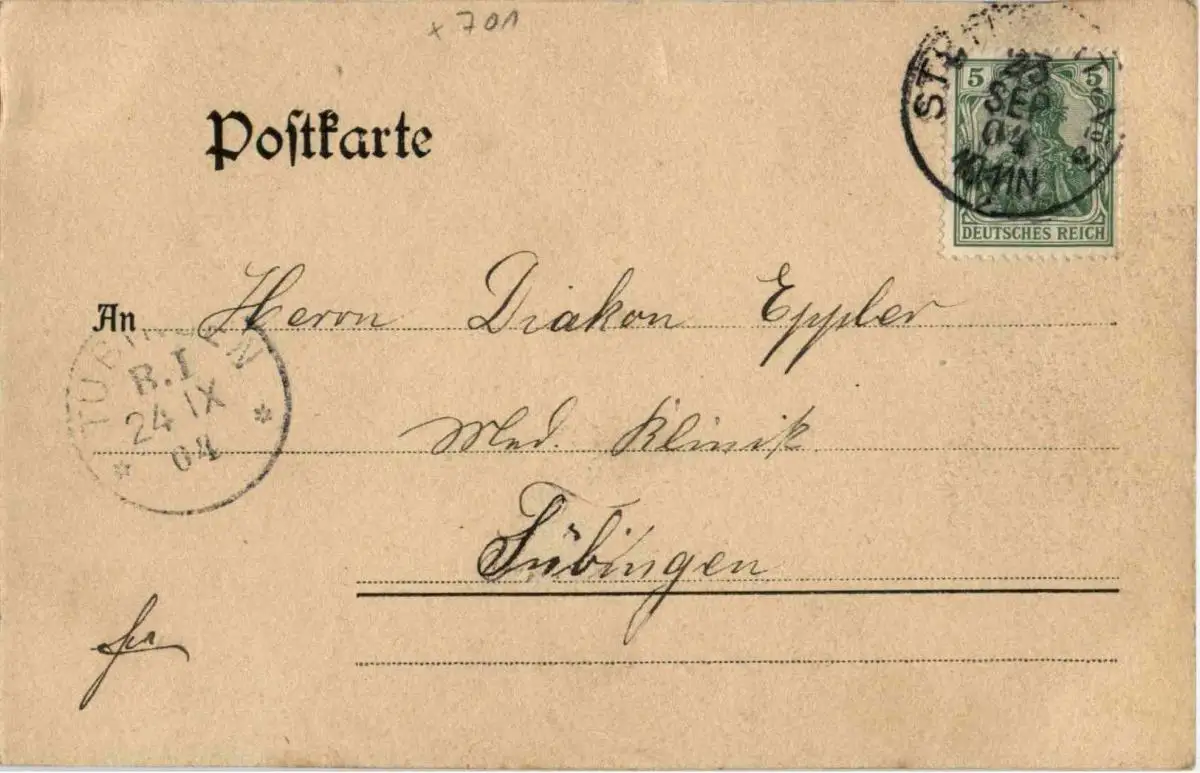 x 701
Postkarte
5 5
23
SEP
04
10-11N
DEUTSCHES REICH
An Herrn Diakon Eppler
TÜBINGEN
B.I
24 IX
04
Med. Klinik.
Tübingen